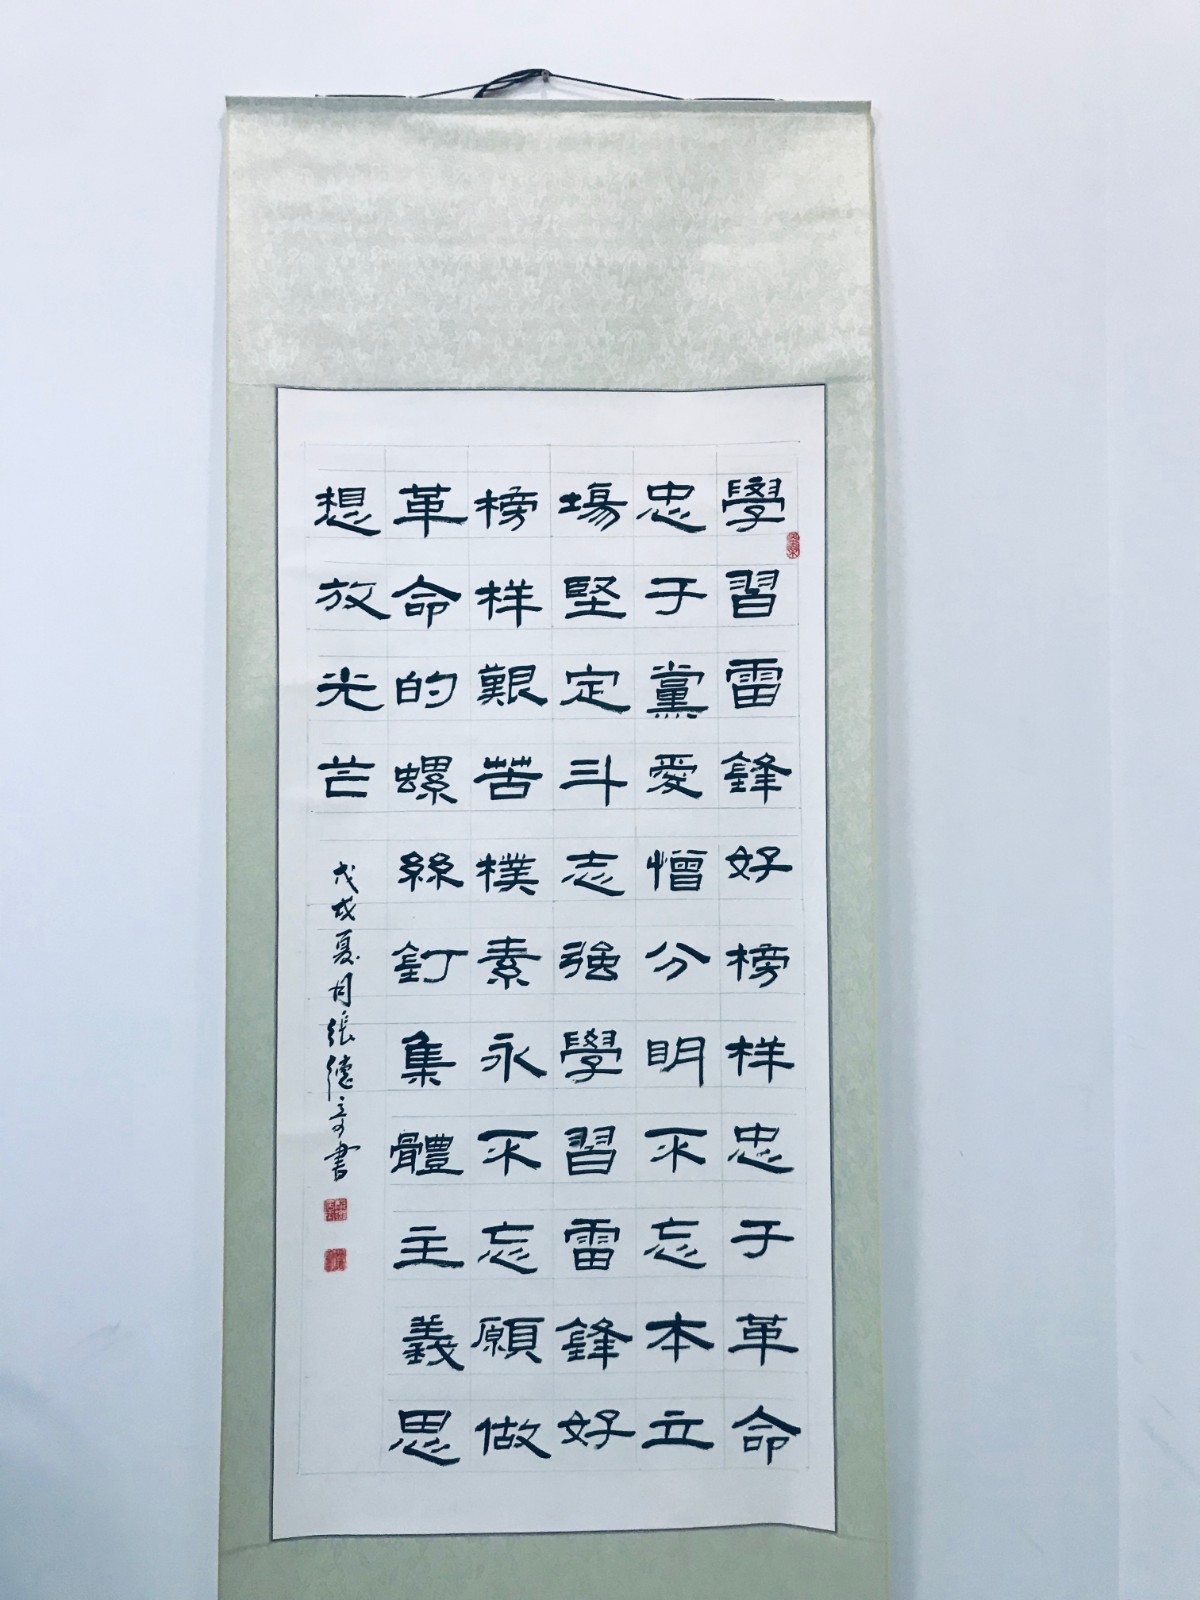 學習雷鋒好榜样忠于革命
忠于黨愛憎分明不忘本立
場堅定斗志強學習雷鋒好
榜样艱苦樸素永不忘願做
革命的螺絲釘集體主義思
想放光芒
戊戌夏月張德奇書